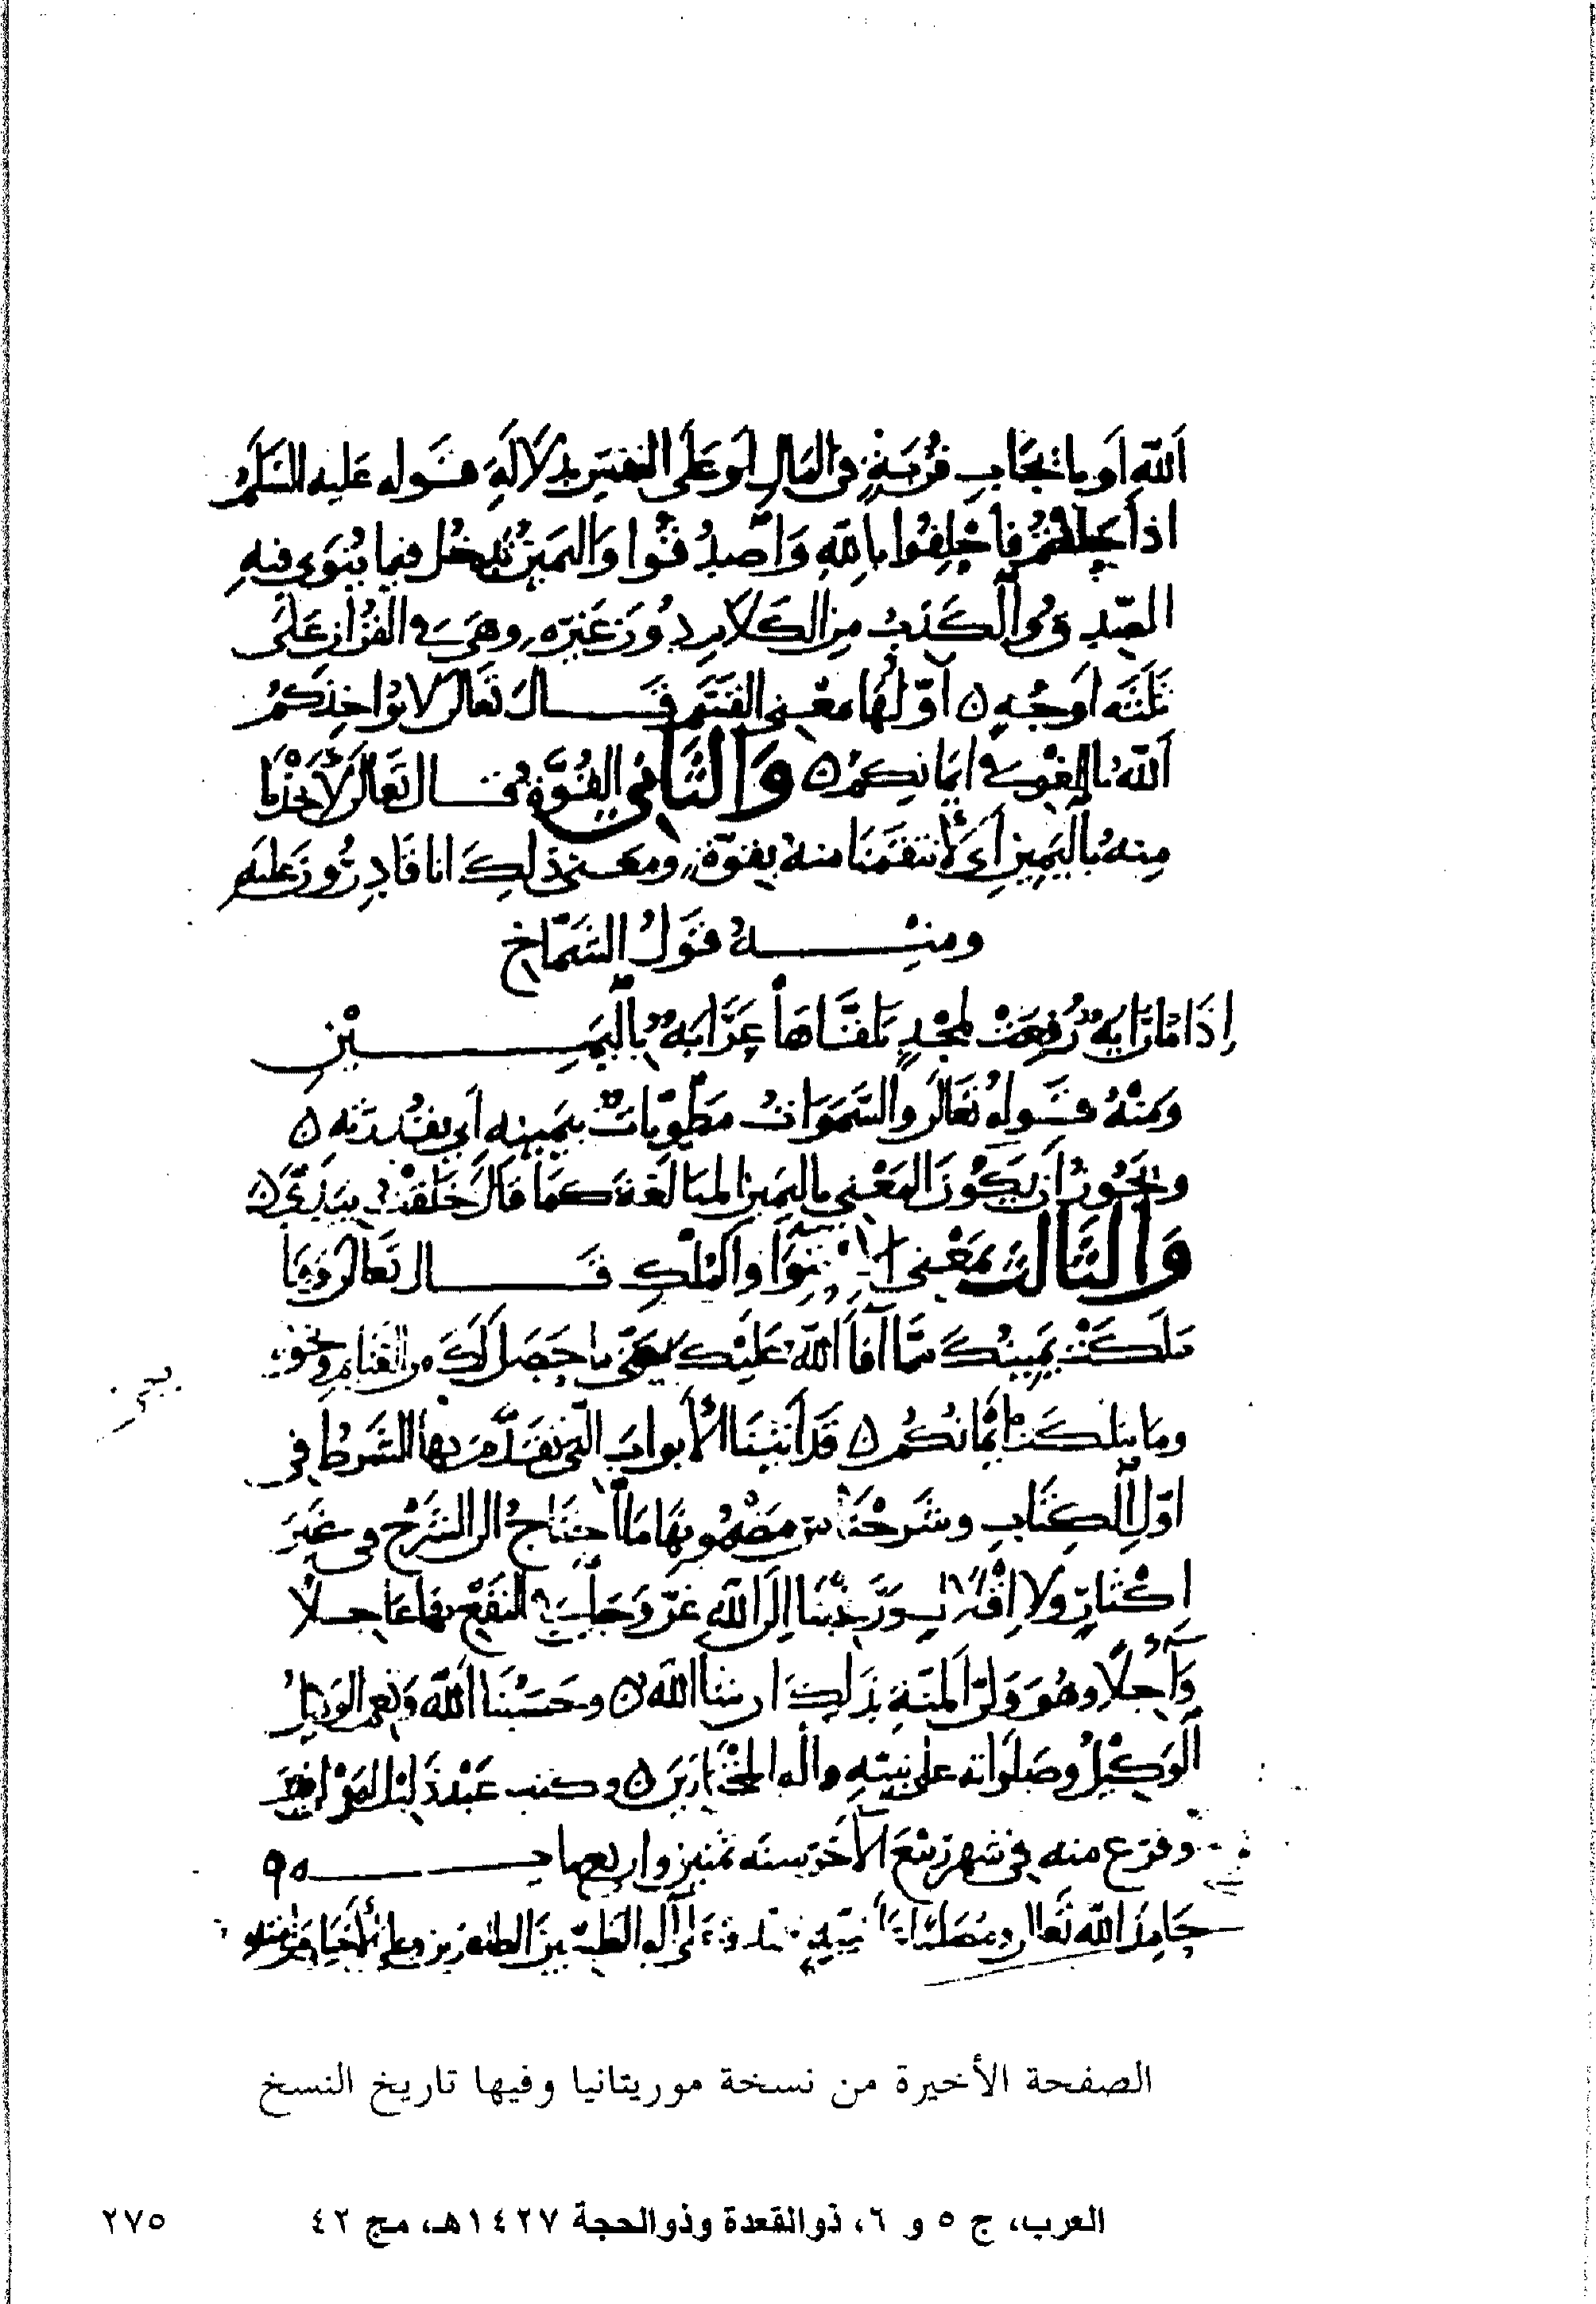 الله او بايجاب قربة في المال او على النفس بدلالة قوله عليه السلم
اذا حلفتم فاحلفوا بالله واصدقوا واليمين تدخل فيما ينوى فيه
الصدق والكذب من الكلام دون غيره وهي في القران على
ثلثة اوجه ٥ اولها معنى القسم قال تعالى لا يؤاخذكم
الله باللغو في ايمانكم ٥ والثاني القوة قال تعالى لأخذنا
منه باليمين اي لأنتقمنا منه بقوة ومعنى ذلك انا قادرون عليه
ومنه قول الشماخ
إذا ما راية رفعت لمجد تلقاها عرابة باليمين
ومنه قوله تعالى والسموات مطويات بيمينه اي بقدرته ٥
ويجوز أن يكون المعنى باليمين المبالغة كما قال خلقت بيدي ٥
والثالث بمعنى والملك قال تعالى وما
ملكت يمينك مما آفا الله عليك يعني ما حصل لك من الغنايم ونحوه
وما ملكت ايمانكم ٥ قد أتينا الأبواب التي تقدم بها الشرط في
اول الكتاب وشرحنا من مضمونها ما احتاج الى الشرح في غير
اكثار ولا اقلال ورغبنا إلى الله عز وجل في النفع بها عاجلا
وآجلا وهو ولي المنة بذلك ان شا الله ٥ وحسبنا الله ونعم الوكيل
الوكيل وصلواته على نبيه واله المختارين ٥ وكتب عبد ذليل
وفرغ منه في شهر ربيع الآخر سنه ثمنين واربعماية
حامدا لله تعالى ومصليا نبيه آله الطيبين الطاهرين
الصفحة الأخيرة من نسخة موريتانيا وفيها تاريخ النسخ
العرب، ج ٥ و ٦، ذوالقعدة وذوالحجة ١٤٢٧هـ، مج ٤٢ ٢٧٥